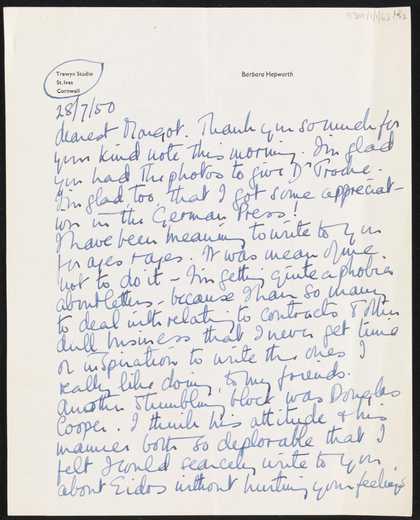 Trewyn Studio
St. Ives
Cornwall
Barbara Hepworth
28/7/50
dearest Margot. Thank you so much for
your kind note this morning. I'm glad
you had the photos to give Dr
I'm glad, too, that I got some appreciat-
ion in the German Press!
I have been meaning to write to you
for ages & ages. It was mean of me
not to do it – I'm getting quite a phobia
about letters – because I have so many
to deal with relating to contracts & other
dull business that I never get time
or inspiration to write the ones I
really like doing, to my friends.
Another stumbling block was Douglas
Cooper. I think his attitude & his
manner both so deplorable that I
felt I could scarcely write to you
about Eidos without hurting your feelings